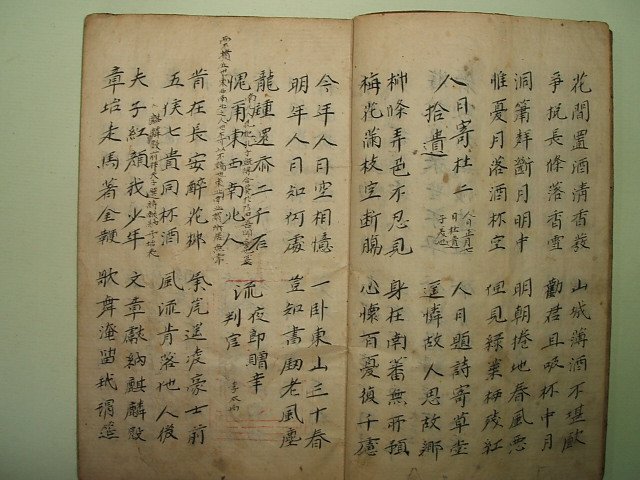 花間置酒清香發 山城薄酒不堪飲
爭挽長條落香雪 勸君且吸杯中月
洞簫聲斷月明中 明朝捲地春風惡
惟憂月落酒杯空 但見綠葉棲殘紅
人日寄杜二 人日題詩寄草堂
人日正月七
日杜甫
子美也
拾遺 遙憐故人思故鄉
柳條弄色不忍見 身在南蕃無所預
梅花滿枝空斷腸 心懷百憂復千慮
今年人日空相憶 一卧東山三十春
明年人日知何處 豈知書劒老風塵
龍鍾還忝二千石 流夜郎贈辛
愧爾東西南北人 判官 李太白
昔在長安醉花柳 氣岸遙凌豪士前
五侯七貴同杯酒 風流肯落他人後
夫子紅顔我少年 文章獻納麒麟殿
章坮走馬著金鞭 歌舞淹留玳瑁筵